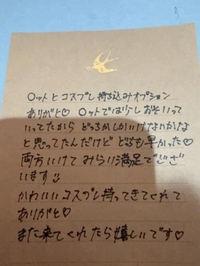 ロットとコスプレ持ち込みオプション
ありがと♡ ロットではらしおそいって
いってたから どっちかしかいけないかな
と思ってたんだけど どっちも早かった♡
両方いけて みらい満足でござ
います
かわいいコスプレ持ってきてくれて
ありがと♡
また来てくれたら嬉しいです♡